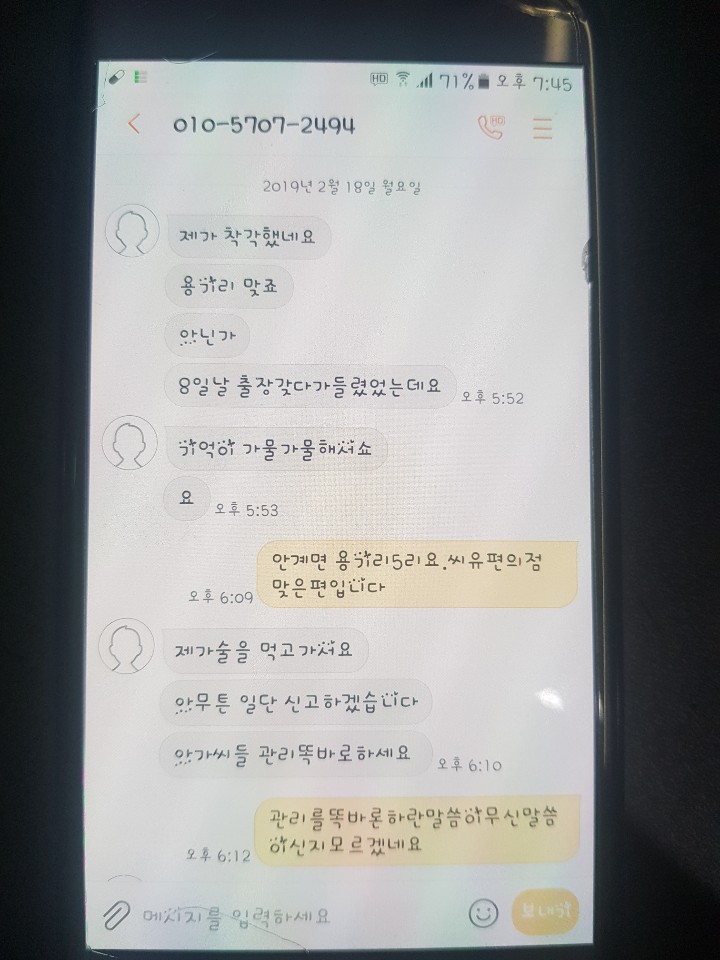 HD 71% 오후 7:45
010-5707-2494
HD
2019년 2월 18일 월요일
제가 착각했네요
용기리 맞죠
아닌가
8일날 출장갖다가들렸었는데요 오후 5:52
기억이 가물가물해서쇼
요 오후 5:53
안계면 용기리5리요.씨유편의점
맞은편입니다
오후 6:09
제가술을 먹고가서요
아무튼 일단 신고하겠습니다
아가씨들 관리똑바로하세요 오후 6:10
관리를똑바론하란말씀이무신말씀
이신지모르겠네요
오후 6:12
메시지를 입력하세요
보내기